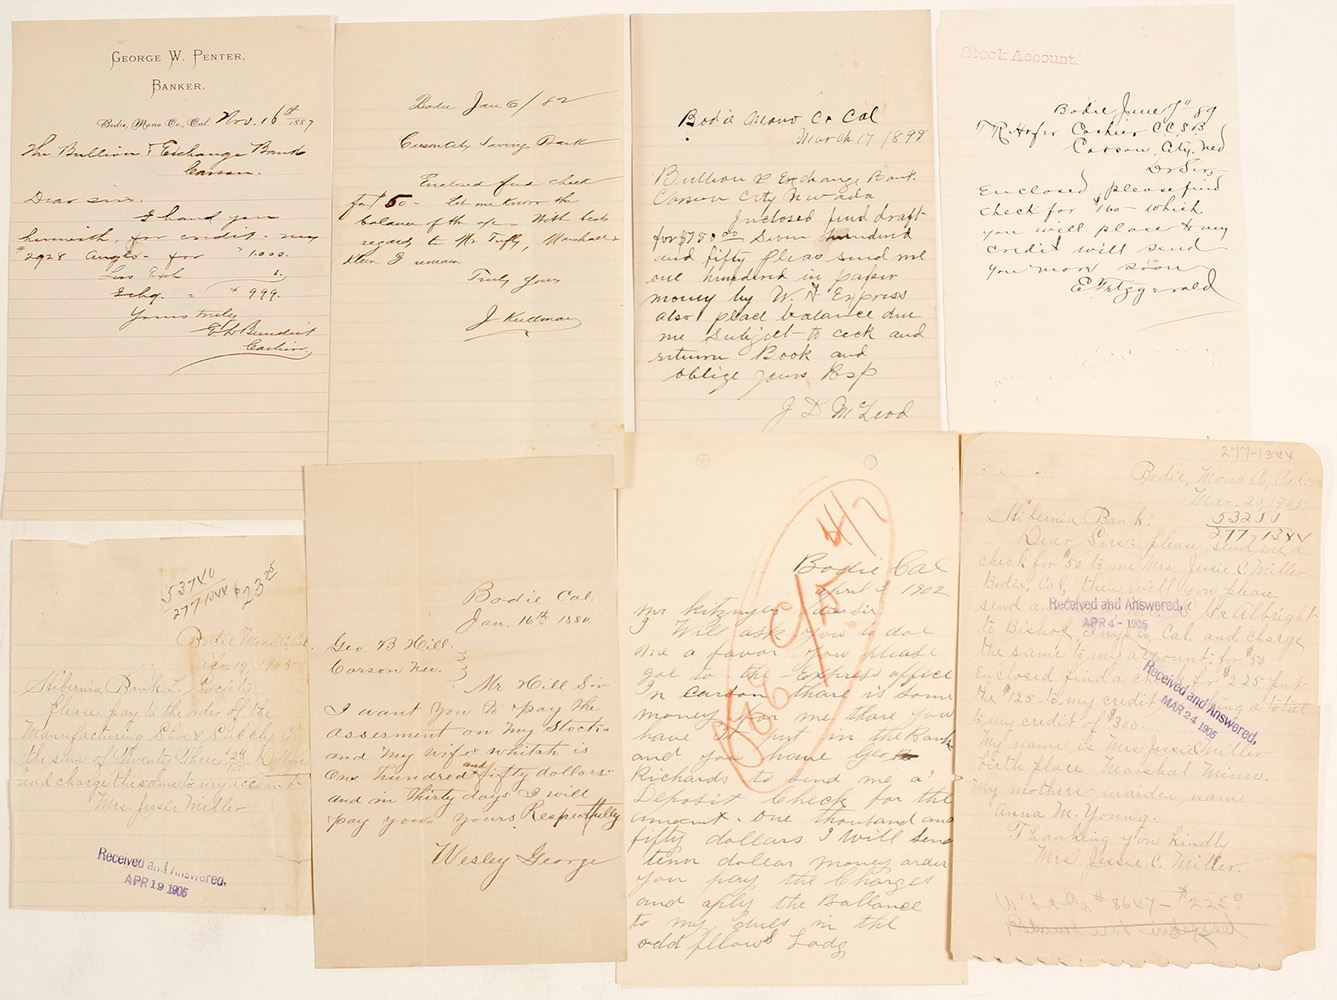 GEORGE W. PENTER,
BANKER.
Bodie, Mono Co., Cal. Nov. 16th 1887
The Bullion & Exchange Bank
Carson.
Dear sir.
I hand you
herewith, for credit - my
#2928 Anglo - for $1,000.
Less Exch 1.
$999.
Yours truly
Cashier
Bodie Jan 6/82
Carson City Savings Bank
Enclosed find check
for $50 - Let me know the
balance of the
regards to Mr. Tufly, Marshall &
I remain
Truly Yours
Bodie Mono Co Cal
March 17/1899
Bullion & Exchange Bank
Carson City Nevada
Inclosed find draft
for $750.00 Seven hundred
and fifty pleas send me
one hundred in paper
money by W. F Express
also place balance due
me Subject to ceck and
return Book and
oblige yours Rsp
J D McLeod
Stock Account.
Bodie June 7th 89
T R Hofer Cashier C C S B
Carson, City, Ned
Dr Sir,
Enclosed please find
check for $160 - which
you will place to my
credit will send
you more soon
E Fitzgerald
53740
277-1344 $23.25
Bodie Mono Co, Cal.
1905
Hibernia Bank L. Society
Please pay to the order of the
Manufacturing
the sum of Twenty Three
and charge the same to my account.
Mrs. Jesie Miller
Received and Answered,
APR 19 1905
Bodie Cal.
Jan. 16th 1880
Geo. B Hill.
Carson Nev.
Mr Hill Sir
I want you to pay the
assesment on my Stock
and my wifes whitch is
one hundred and fifty dollars
and in thirty days I will
pay you. yours Respectfully
Wesley George
4/7
Bodie Cal
April 3 1902
Mr Dear sir
I Will ask you to doe
me a favor you please
goe to the Express office
in carson thare is some
money for me thare you
have It put in the Bank
and you have Geo
Richards to send me a
Deposit Check for the
amount. one thousand and
fifty dollars I will send
tenn dollar money order
you pay the Charges
and aply the Ballance
to my dues in the
odd fellows Lodg
277-1344
Bodie, Mono Co, Cal.
Mar. 20, 1905
Hibernia Bank:
277-1344
Dear Sirs: please send me a
check for $50 to me Mrs. Jessie C. Miller
Bodie, Cal, then will you please
send a Albright
to Bishop, Inyo Co, Cal and charge
the same to my account for $50
Enclosed find a check for $225. put
the $125 to my credit making a total
to my credit of $300.
My name is Mrs Jessie C Miller
birth place Marshal Minn.
my mothers maiden name
Anna M. Young.
Thanking you kindly
Mrs Jessie C. Miller.
Received and Answered,
APR 4 - 1905
Received and Answered,
MAR 24 1905
# 8647 - $225